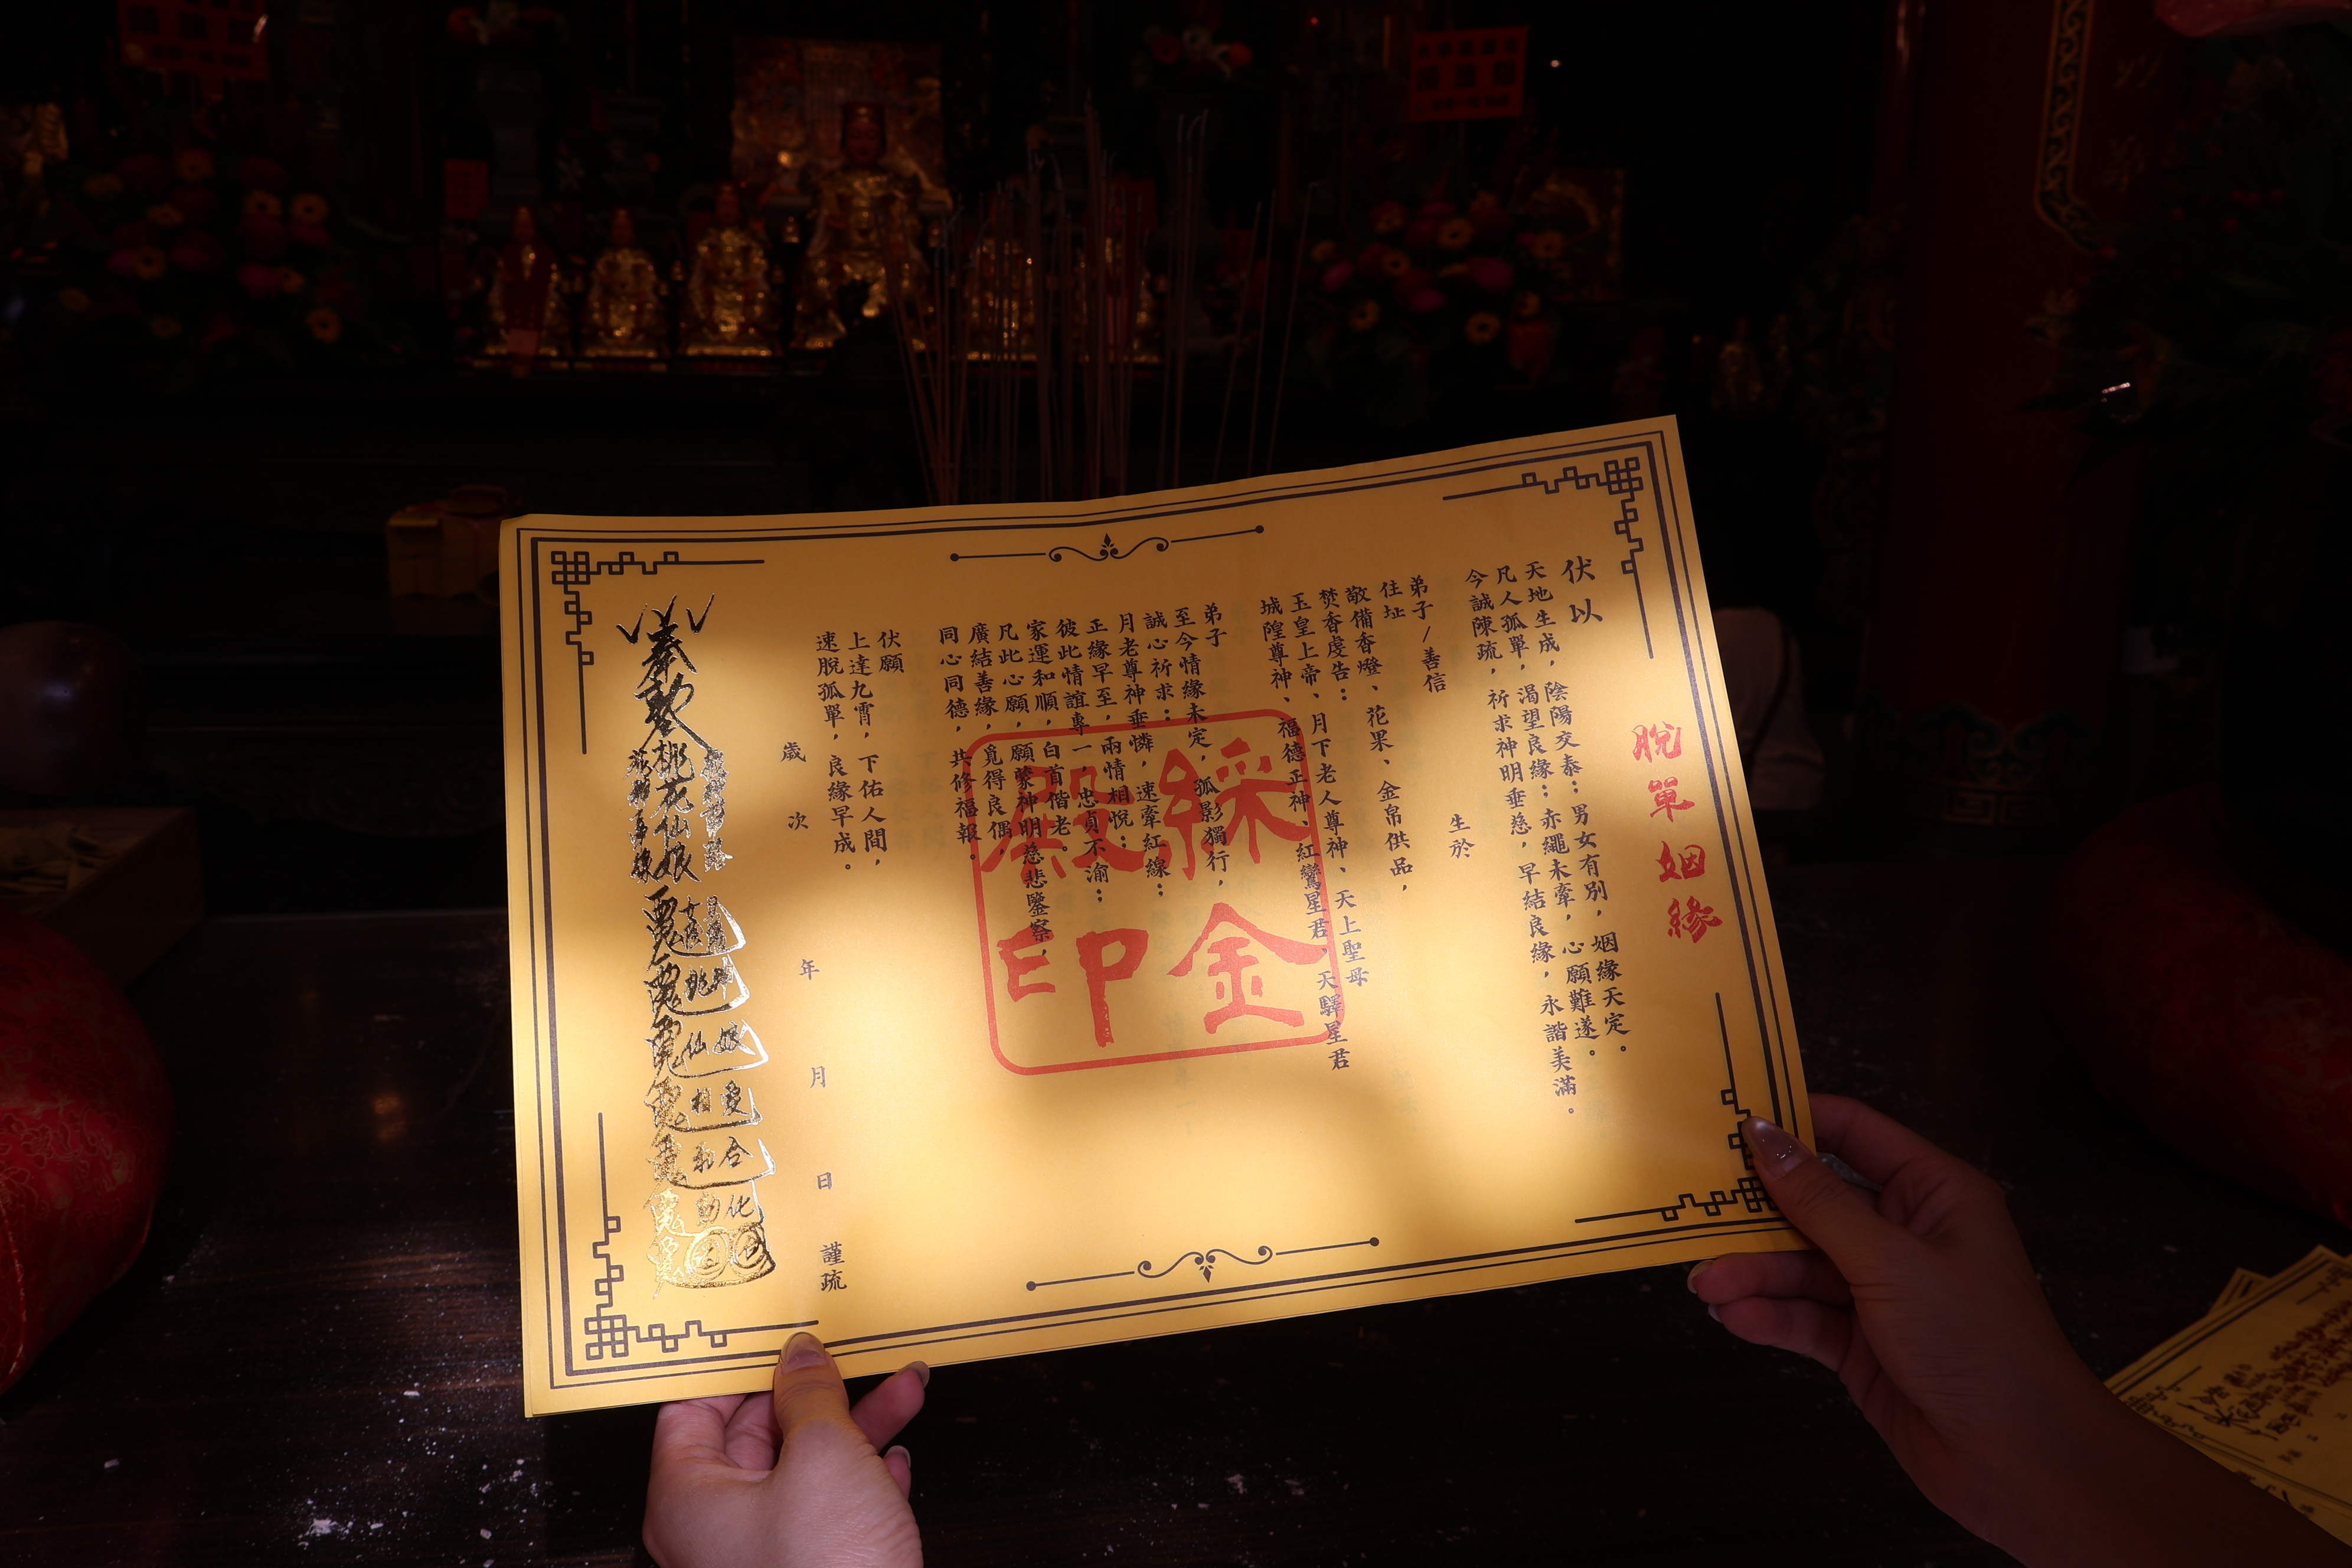 脫單姻緣
伏以
天地生成，陰陽交泰：男女有別，姻緣天定。
凡人孤單，渴望良緣：赤繩未牽，心願難遂。
今誠陳疏，祈求神明垂慈，早結良緣，永諧美滿。
弟子/善信 生於
住址
敬備香燈、花果、金帛供品，
焚香虔告：月下老人尊神、天上聖母
玉皇上帝、
城隍尊神、福德正神、紅鸞星君，天驛星君
弟子
至今情緣未定，孤影獨行，
誠心祈求：
月老尊神垂憐，速牽紅線：
正緣早至，兩情相悅：
彼此情誼專一，忠貞不渝：
家運和順，白首偕老。
凡此心願，願蒙神明慈悲鑒察，
廣結善緣，覓得良偶，
同心同德，共修福報。
伏願
上達九霄，下佑人間，
速脫孤單，良緣早成。
歲次 年 月 日 謹疏
奉勅桃花仙娘
綵金殿印